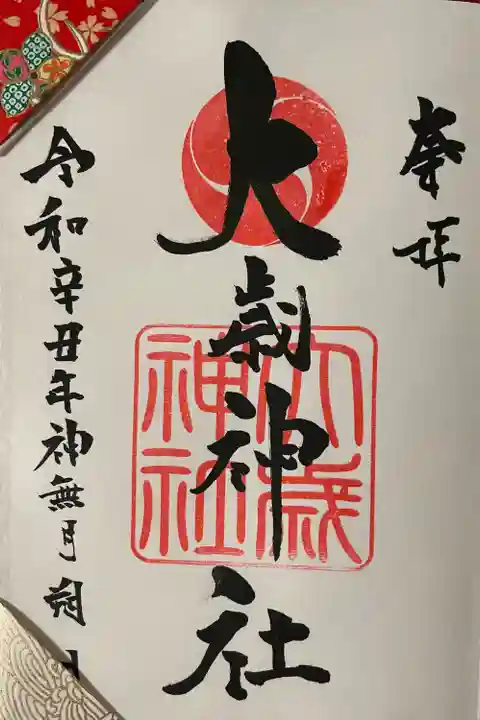 奉拝
大歳神社
大歳神社
令和辛丑年神無月朔日